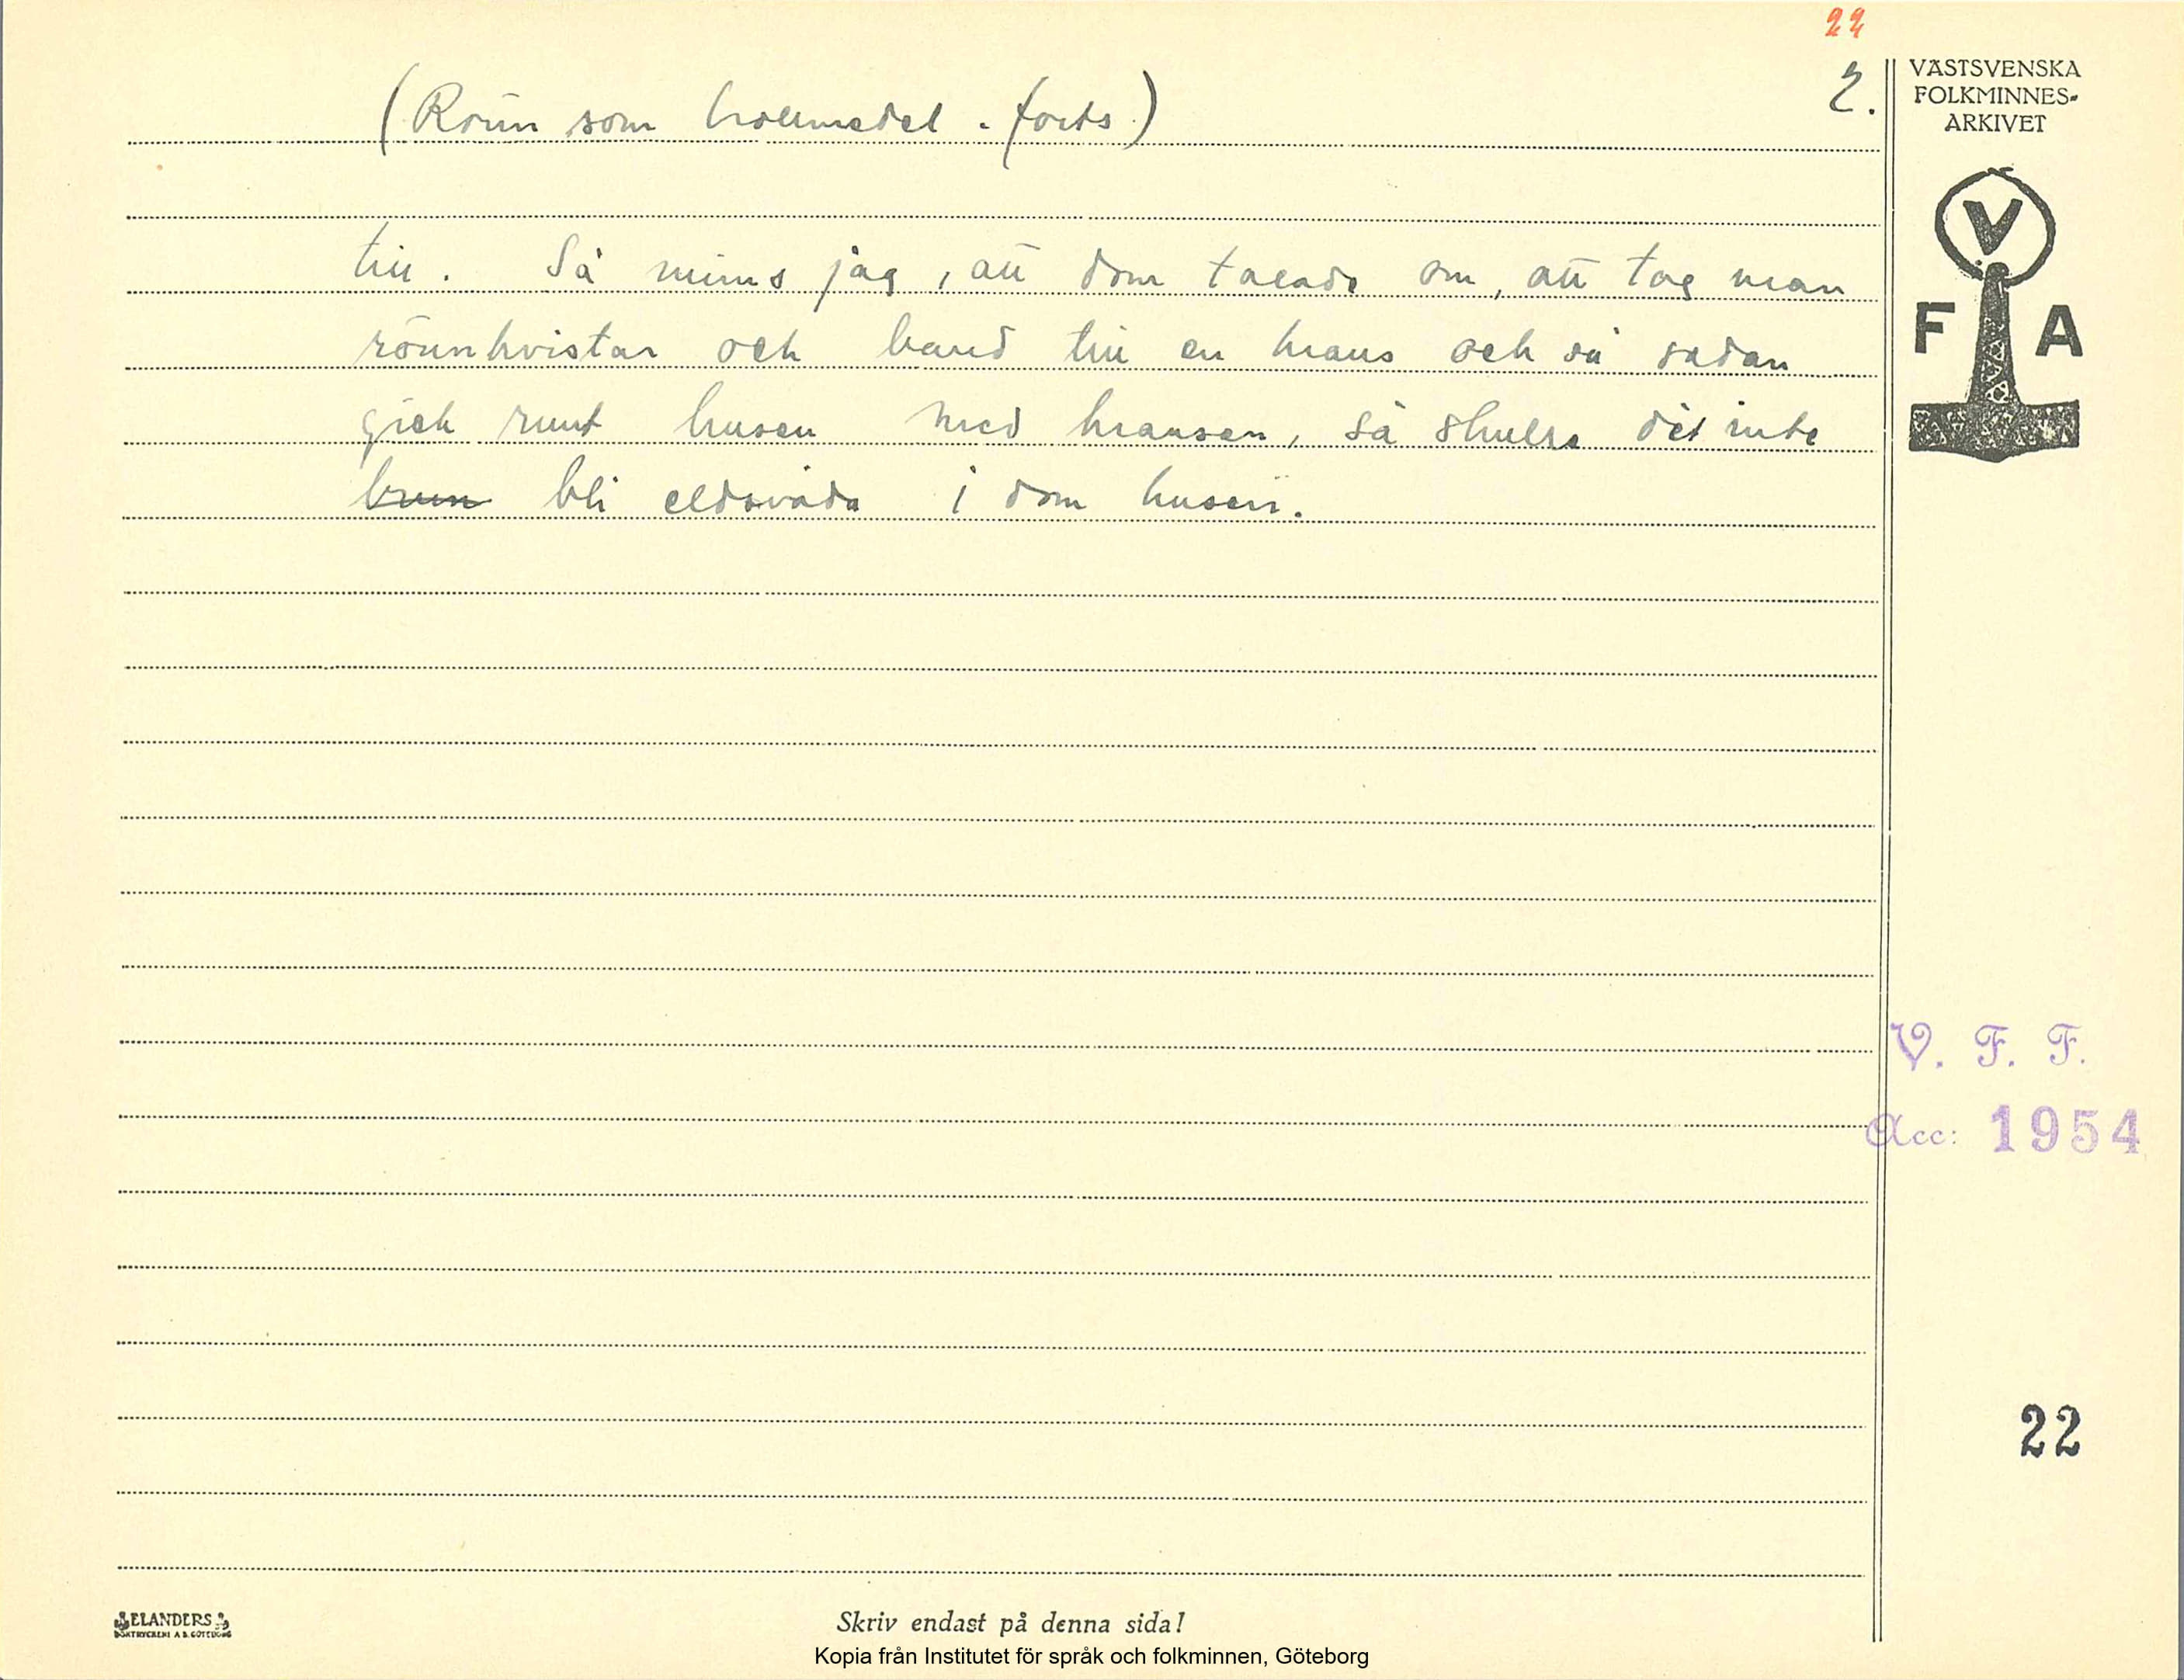 22
2.
(Rönn som trollmedel. forts.)
till. Så minns jag, att dom talade om, att tog man
rönnkvistar och band till en krans och så sedan
gick runt husen med kransen, så skulle det inte
brun bli eldsvåda i dom husen.
VÄSTSVENSKA
FOLKMINNES-
ARKIVET
V
F A
V. F. F.
Acc: 1954
22
ELANDERS
BOKTRYCKERI A B. GÖTEBORG
Skriv endast på denna sida!
Kopia från Institutet för språk och folkminnen, Göteborg